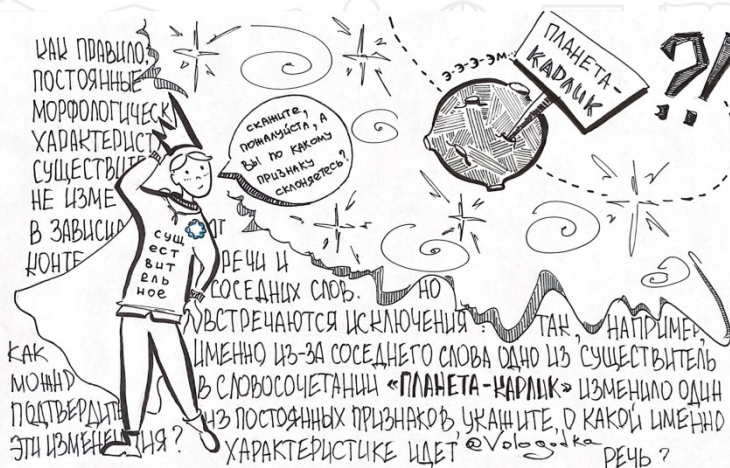 КАК ПРАВИЛО,
ПОСТОЯННЫЕ
МОРФОЛОГИЧЕСК
ХАРАКТЕРИСТ
СУЩЕСТВИТЕ
НЕ ИЗМЕ
В ЗАВИСИ ОТ
КОНТЕ РЕЧИ И
СОСЕДНИХ СЛОВ. НО
ВСТРЕЧАЮТСЯ ИСКЛЮЧЕНИЯ. ТАК, НАПРИМЕР,
ИМЕННО ИЗ-ЗА СОСЕДНЕГО СЛОВА ОДНО ИЗ СУЩЕСТВИТЕЛЬ
В СЛОВОСОЧЕТАНИИ «ПЛАНЕТА-КАРЛИК» ИЗМЕНИЛО ОДИН
ИЗ ПОСТОЯННЫХ ПРИЗНАКОВ, УКАЖИТЕ, О КАКОЙ ИМЕННО
ХАРАКТЕРИСТИКЕ ИДЕТ РЕЧЬ?
КАК
МОЖНО
ПОДТВЕРДИТЬ
ЭТИ ИЗМЕНЕНИЯ?
СКАЖИТЕ,
ПОЖАЛУЙСТА, А
ВЫ ПО КАКОМУ
ПРИЗНАКУ
СКЛОНЯЕТЕСЬ?
сущ
ест
вит
ель
ное
Э-Э-Э-ЭМ
ПЛАНЕТА-
КАРЛИК
?!
@Vologodka